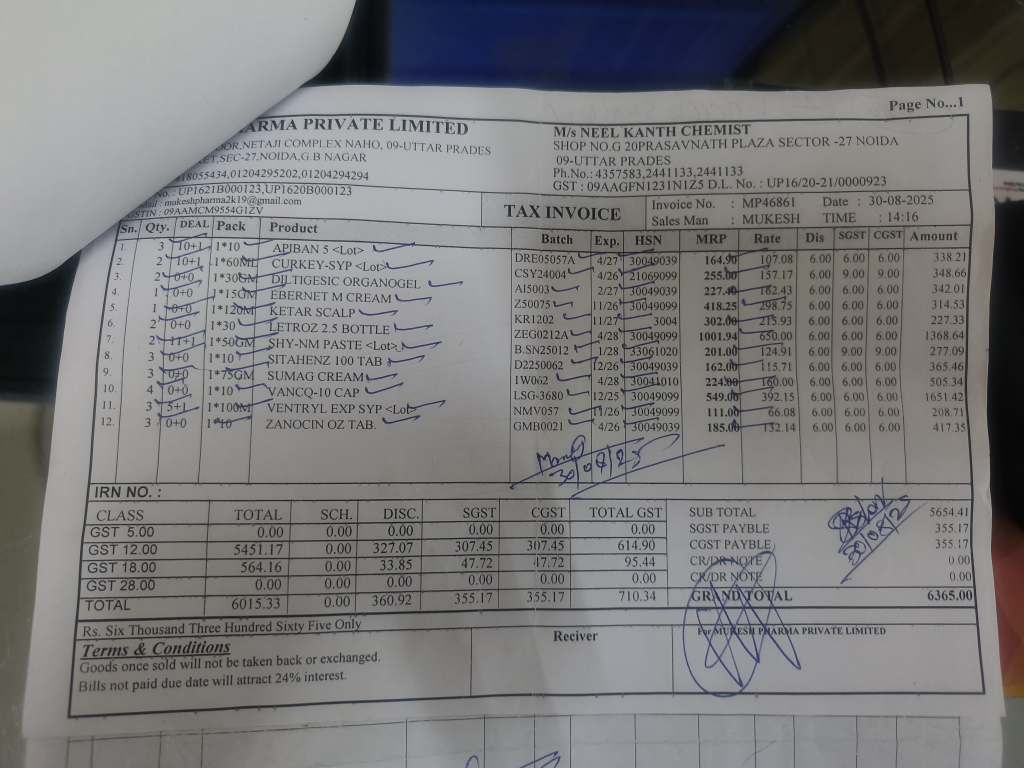 Page No...1
ARMA PRIVATE LIMITED
OOR,NETAJI COMPLEX NAHO, 09-UTTAR PRADES
KET,SEC-27,NOIDA,G.B NAGAR
18055434,01204295202,01204294294
No. : UP1621B000123,UP1620B000123
mail : mukeshpharma2k19@gmail.com
GSTIN : 09AAMCM9554G1ZV
M/s NEEL KANTH CHEMIST
SHOP NO.G 20PRASAVNATH PLAZA SECTOR -27 NOIDA
09-UTTAR PRADES
Ph.No.: 4357583,2441133,2441133
GST : 09AAGFN1231N1Z5 D.L. No. : UP16/20-21/0000923
TAX INVOICE
Invoice No. : MP46861 Date : 30-08-2025
Sales Man : MUKESH TIME : 14:16
Sn. Qty. DEAL Pack Product Batch Exp. HSN MRP Rate Dis SGST CGST Amount
1. 3 10+1 1*10 APIBAN 5 <Lot> DRE05057A 4/27 30049039 164.90 107.08 6.00 6.00 6.00 338.21
2. 2 10+1 1*60ML CURKEY-SYP <Lot> CSY24004 4/26 21069099 255.00 157.17 6.00 9.00 9.00 348.66
3. 2 0+0 1*30GM DILTIGESIC ORGANOGEL AI5003 2/27 30049099 227.40 162.43 6.00 6.00 6.00 342.01
4. 1 0+0 1*15GM EBERNET M CREAM Z50075 11/26 30049099 418.25 298.75 6.00 6.00 6.00 314.53
5. 1 0+0 1*120M KETAR SCALP KR1202 11/27 3004 302.00 215.93 6.00 6.00 6.00 227.33
6. 2 0+0 1*30 LETROZ 2.5 BOTTLE ZEG0212A 4/28 30049099 1001.94 650.00 6.00 6.00 6.00 1368.64
7. 2 11+1 1*50GM SHY-NM PASTE <Lot> B.SN25012 1/28 33061020 201.00 124.91 6.00 9.00 9.00 277.09
8. 3 0+0 1*10 SITAHENZ 100 TAB D2250062 12/26 30049039 162.00 115.71 6.00 6.00 6.00 365.46
9. 3 0+0 1*75GM SUMAG CREAM 1W062 4/28 30041010 224.00 160.00 6.00 6.00 6.00 505.34
10. 4 0+0 1*10 VANCQ-10 CAP LSG-3680 12/25 30049039 549.00 392.15 6.00 6.00 6.00 1651.42
11. 3 5+1 1*100M VENTRYL EXP SYP <Lot NMV057 1/26 30049099 111.00 66.08 6.00 6.00 6.00 208.71
12. 3 0+0 1*10 ZANOCIN OZ TAB. GMB0021 4/26 30049039 185.00 132.14 6.00 6.00 6.00 417.35
30/08/25
IRN NO. :
CLASS TOTAL SCH. DISC. SGST CGST TOTAL GST
GST 5.00 0.00 0.00 0.00 0.00 0.00 0.00
GST 12.00 5451.17 0.00 327.07 307.45 307.45 614.90
GST 18.00 564.16 0.00 33.85 47.72 47.72 95.44
GST 28.00 0.00 0.00 0.00 0.00 0.00 0.00
TOTAL 6015.33 0.00 360.92 355.17 355.17 710.34
SUB TOTAL 5654.41
SGST PAYBLE 355.17
CGST PAYBLE 355.17
CR/DR NOTE 0.00
CR/DR NOTE 0.00
GRAND TOTAL 6365.00
30/08/25
Rs. Six Thousand Three Hundred Sixty Five Only
Terms & Conditions
Goods once sold will not be taken back or exchanged.
Bills not paid due date will attract 24% interest.
Reciver
For MUKESH PHARMA PRIVATE LIMITED